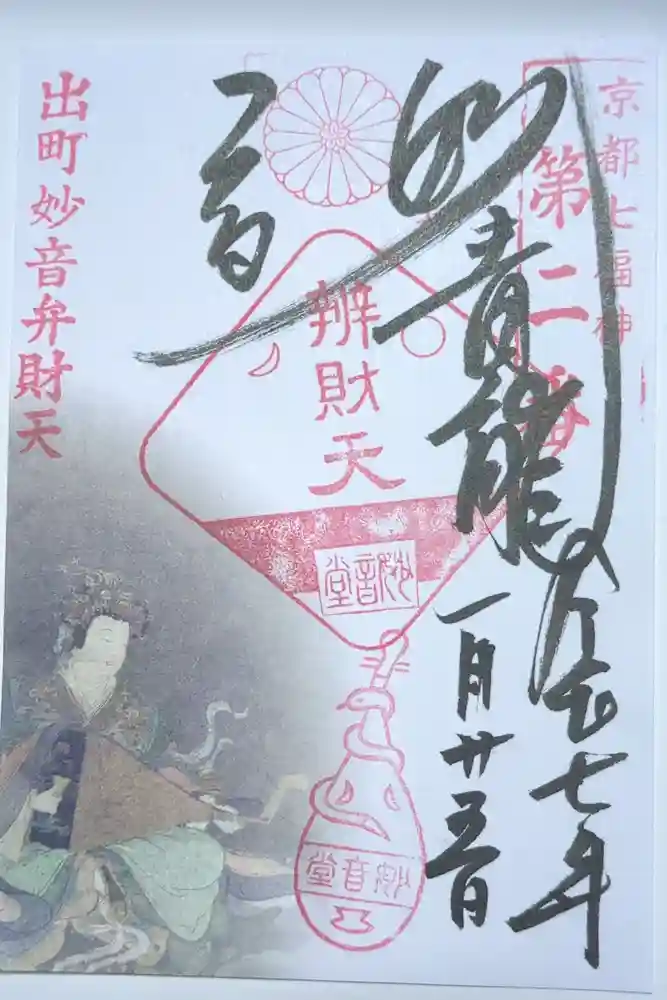 京都七福神
第二番
青龍
七年
一月廿五日
辨財天
妙音堂
妙音堂
出町妙音弁財天